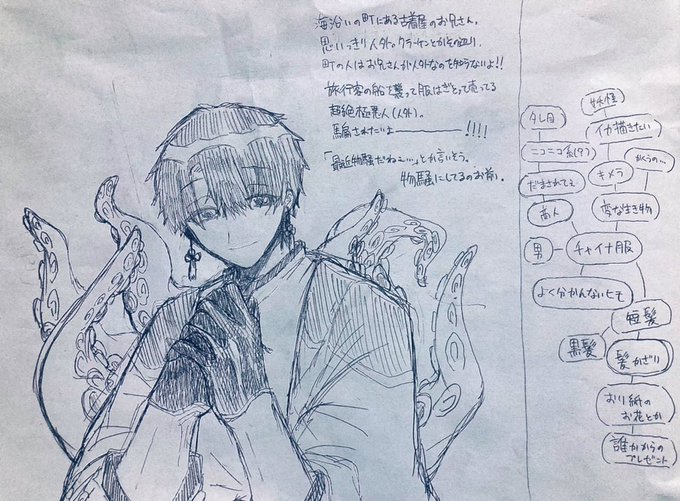 海沿いの町にある古着屋のお兄さん。
思いっきり人外。クラーケンとかその辺り。
町の人はお兄さんが人外なのを知らないよ!!
旅行客の船を襲って服はぎとって売ってる
超絶極悪人(人外)。
馬騙されたよ――――!!!!
「最近物騒だねぇ…」とか言いそう。
物騒にしてるのお前。
妖怪
タレ目
イカ描きたい
ニコニコ系(?)
かくうの…
キメラ
だまされてぇ
変な生き物
商人
男
チャイナ服
よく分かんないヒモ
短髪
黒髪
髪かざり
おり紙の
お花とか
誰かからの
プレゼント